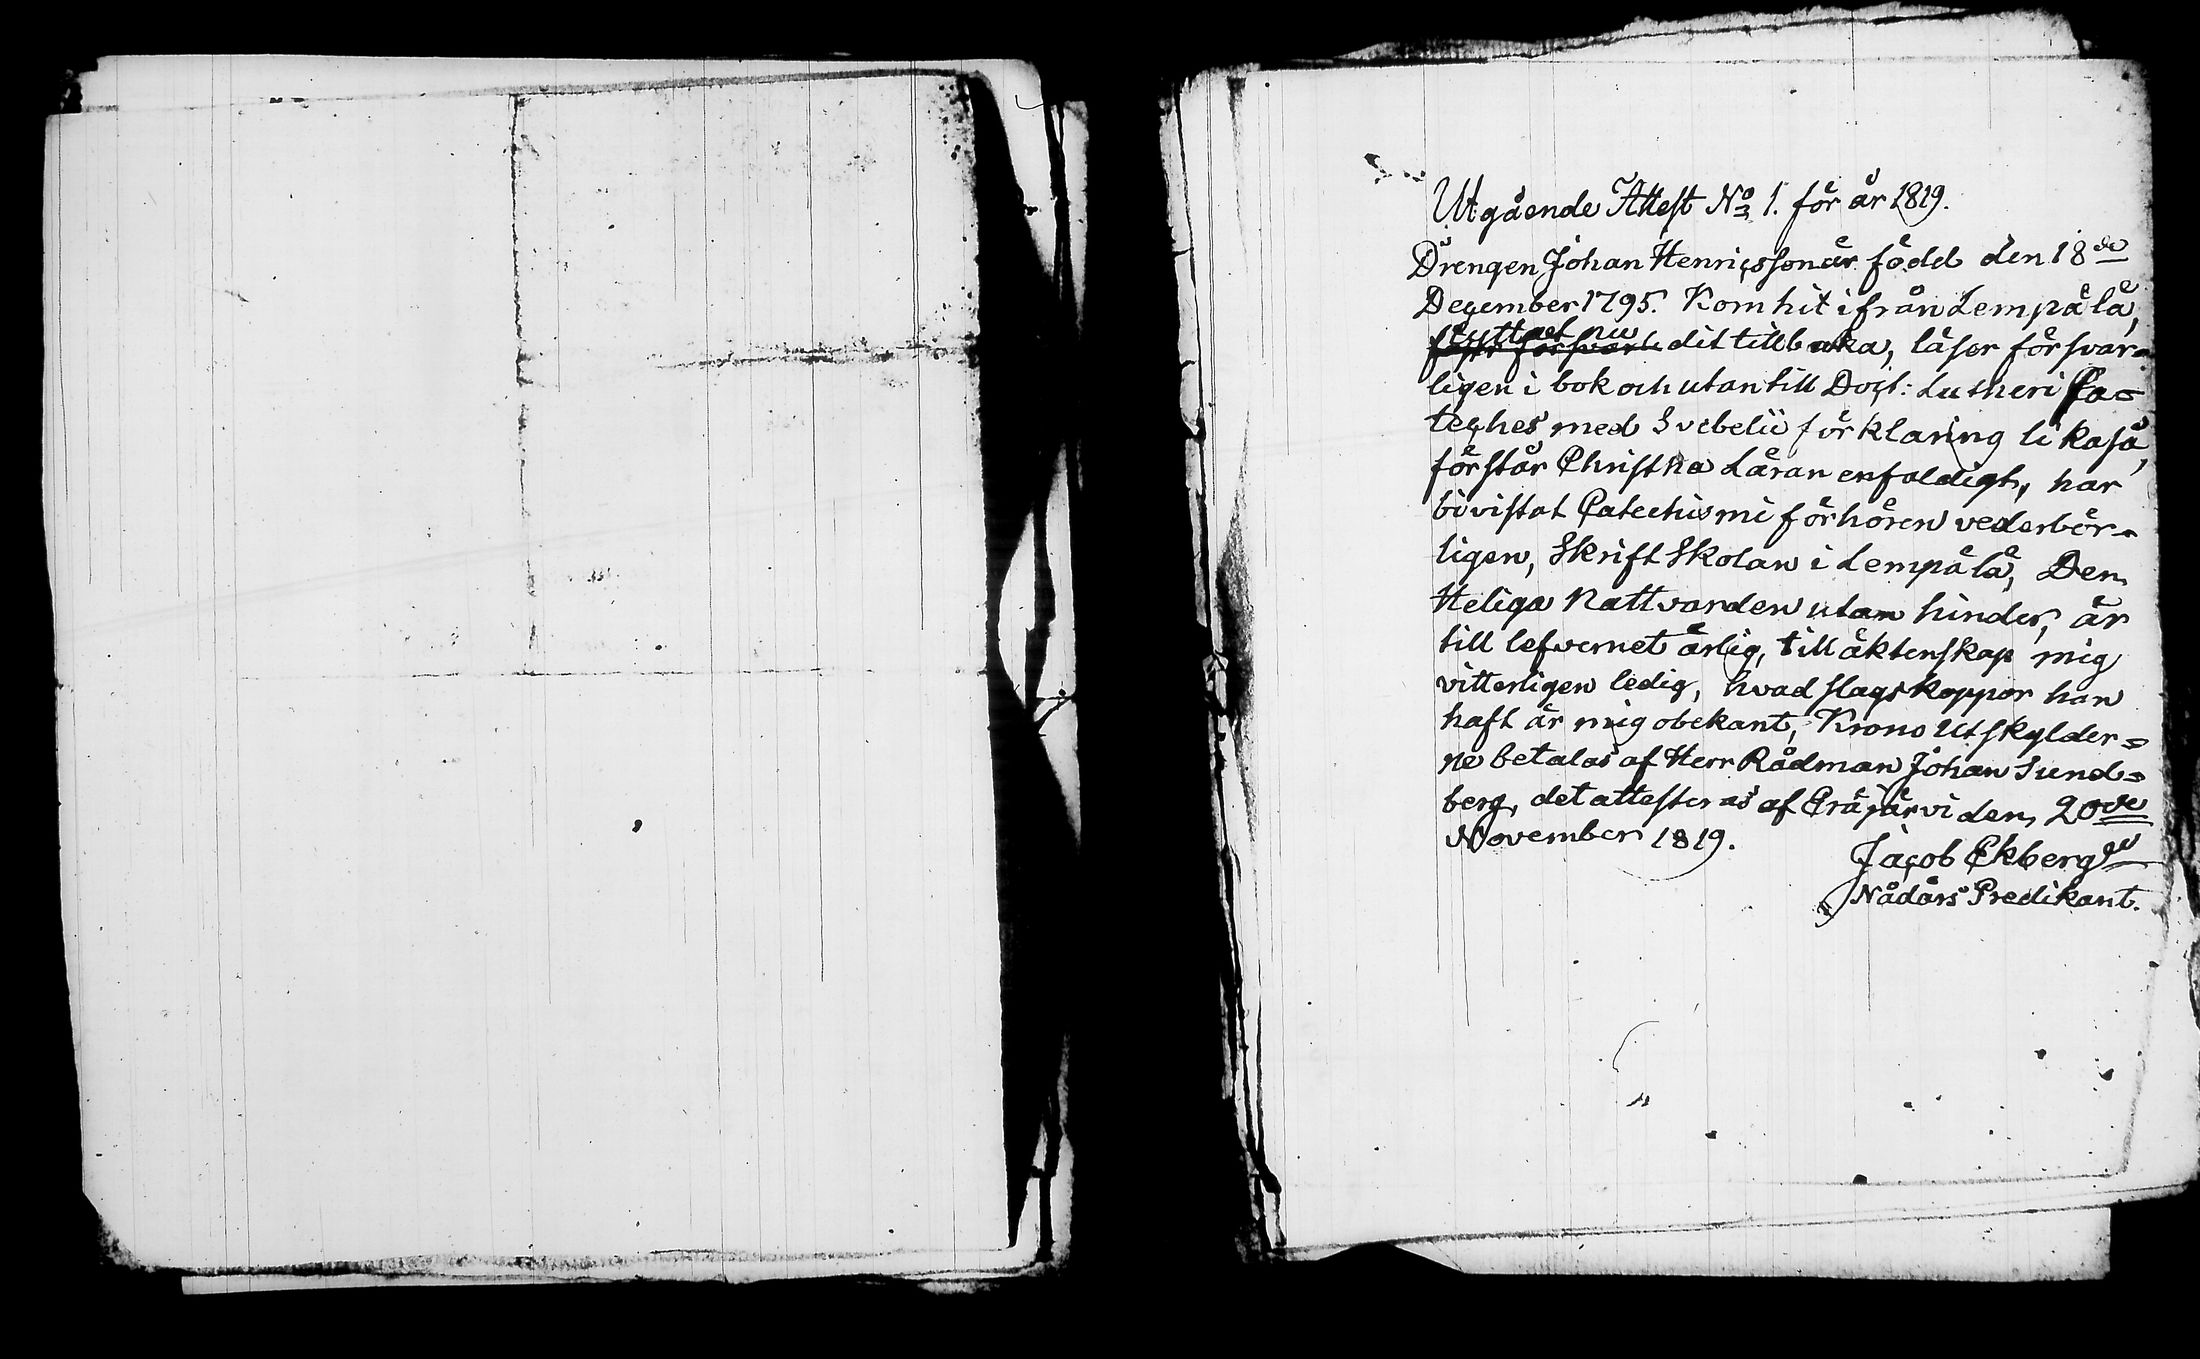 Utgående Attest No 1. för år 1819.
Drengen Johan Henricsson är född den 18de
December 1795. Kom hit ifrån Lempälä,
flyttat nu
dit tillbaka, läser försvar-
ligen i bok och utantill Doct: Lutheri Ca-
teches med Svebelii förklaring likaså,
förstår Christna Läran enfaldigt, har
bivistat Catechismi förhören vederbör-
ligen, Skrift Skolan i Lempälä, Den
Heliga Nattvarden utan hinder, är
till lefvernet ärlig, till äktenskap mig
vitterligen ledig, hvad slags koppor han
haft är mig obekant, Krono Utskylder=
ne betalas af Herr Rådman Johan Sund=
berg, det attesteras af Gräsjärvi den 20de
November 1819.
Jacob Ekberg
Nådårs Predikant.